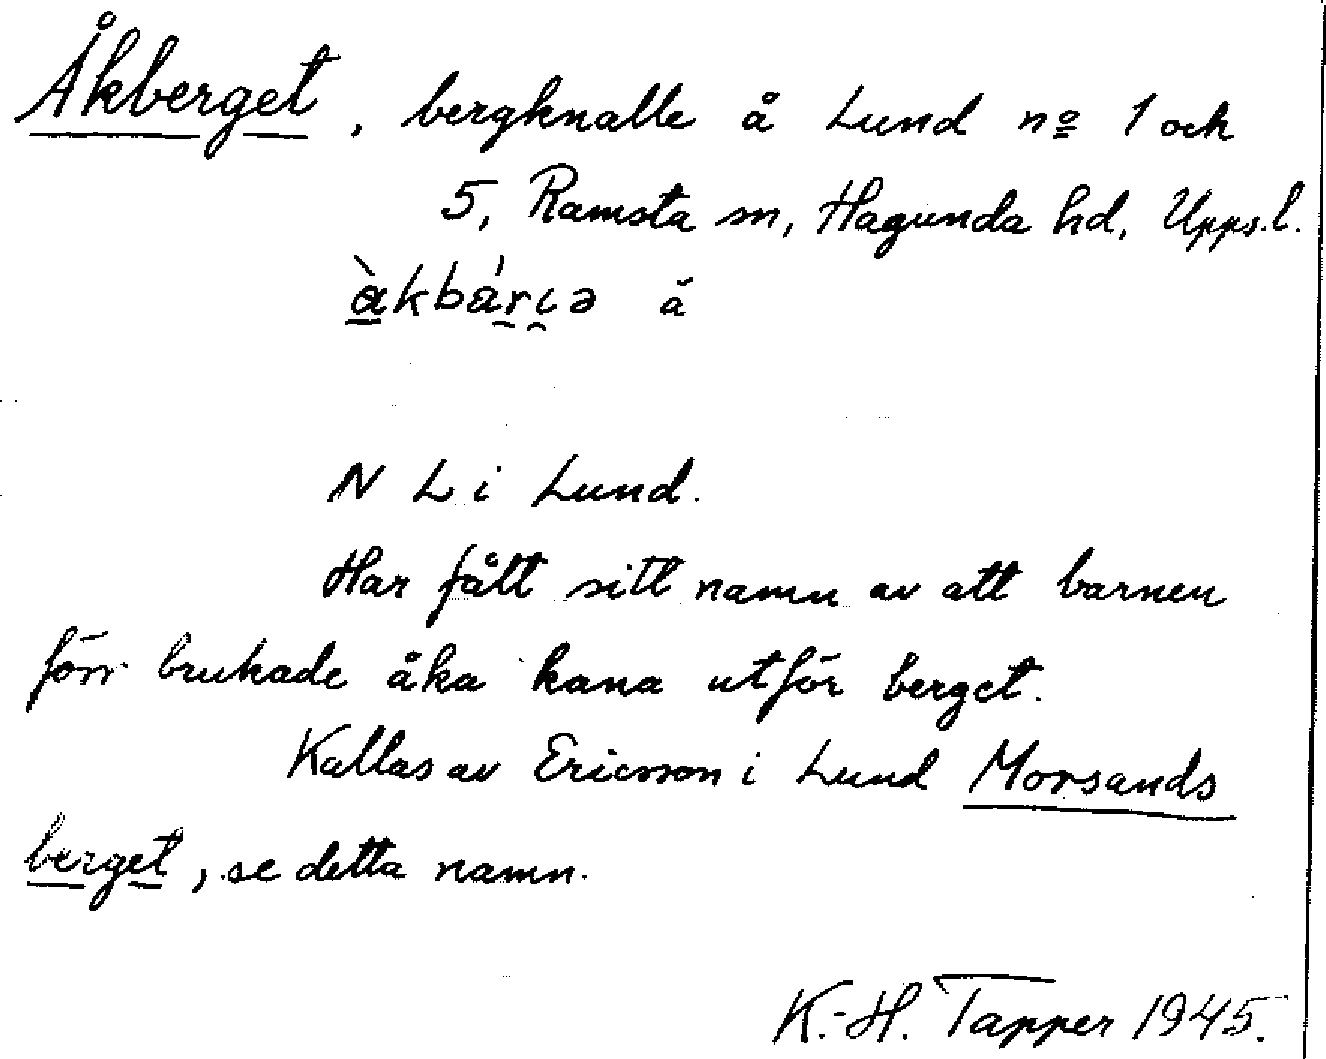 Åkberget, bergknalle å Lund nº 1 och
5, Ramsta sn, Hagunda hd, Upps. l.
å
N L i Lund.
Har fått sitt namn av att barnen
förr brukade åka kana utför berget.
Kallas av Ericsson i Lund Morsands
berget, se detta namn.
K.-H. Tapper 1945.